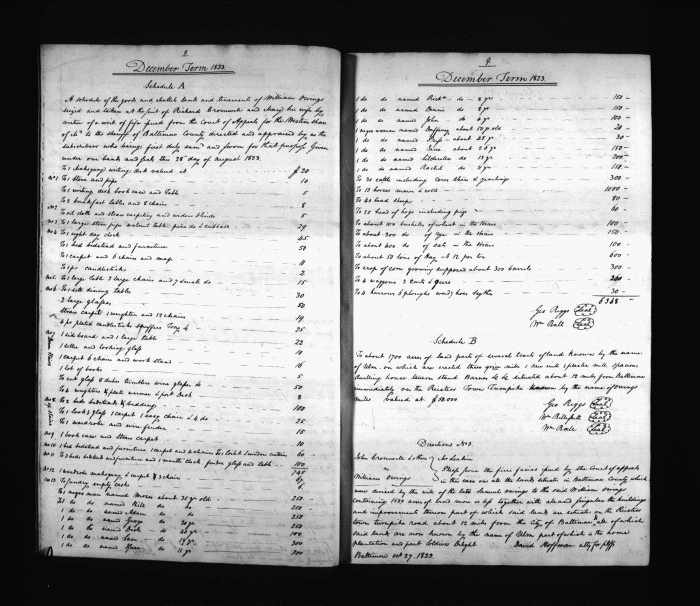 3
December Term 1823
Schedule A
A schedule of the goods and chattels lands and tenements of William Owings
seized and taken at the suit of Richard Cromwell and Mary his wife by
virtue of a writ of fifa issued from the Court of Appeals for the Western Shore
of Md to the sheriff of Baltimore County directed and appraised by us the
subscribers who being first duly sworn for that purpose Given
under our hands and seals this 28th day of August 1823.
To 1 Mahogany writing desk valued at $20
No 1 To 1 stove and pipe 10
To 1 writing desk book case and Table 5
To 2 breakfast tables and 8 chairs 8
No 2 To oil cloth and stair carpeting and 5
No 3 To 1 large pine walnut table 29
No 4 To 1 eight day clock 45
To 1 bed bedstead and furniture 50
To 1 carpet and 6 chairs and map 11
To 1 pr candlesticks 2
No 5 To 1 large Table 2 large chairs and 7 small do 15
No 6 To 1 set dining table 30
2 large glasses 50
stair carpet and 12 chairs 19
4 pr plated candlesticks snuffers Tray &c 25
No 7 1 side board and 1 large table 22
1 settee and looking glass 10
1 carpet 6 chairs and work stand 16
1 lot of books 5
To cut glass wine glasses &c 50
plate warmer & port Desk 8
No 8 To 2 beds bedsteads & bedding 100
To 1 look g glass 1 carpet 1 easy chair & 4 do 25
To 1 wardrobe and wire fender 15
No 9 1 book case and stair carpet 10
No 10 1 bed bedstead and furniture 1 carpet and 4 chairs 1 toilet window curtain 60
No 11 To 3 beds bedsteads and furniture and 1 mantle clock fender glass and table 100
745
No 12 1 wardrobe mahogany & carpet & 3 chairs 67
No 13 To sundry empty casks 5
To 1 negro man named Moses about 35 yrs old 250
To 1 do do Bill do 250
1 do do Adam do 250
1 do do George 30 yr 250
1 do do Dick 200
1 do do Sam 19 yr 300
1 do do 11 yr 200
4
December Term 1823
1 do do named Richd do 8 yrs 150
1 do do named Dennis do 8 yr 150
1 do do named John do 6 yr 100
1 negro woman named about 50 yr old 20
1 do do named do 45 yr 30
1 do do named Jane do 26 yr 150
1 do do named do 13 yr 200
1 do do named Rachel do 11 yr 150
To 30 cattle including cows steers & yearlings 300
To 13 horses mares & colts 1000
To 40 head sheep 80
To 25 head of hogs including pigs 60
To about 100 bushels of wheat in the straw 100
To about 300 do of rye in the straw 150
To about 400 do of oats in the straw 100
To about 50 tons of Hay at 12 per ton 600
To crop of corn growing supposed about 300 barrels 300
To 4 waggons 2 carts & Gears 260
To 4 harrows 6 ploughs wood hoes Scythes 30
6348
Geo Riggs Seal
Wm Ball Seal
Schedule B
To about 1700 acres of land part of several tracts of land known by the name
of Ulm on which are erected three grist mills 1 saw mill 1 plaster mill spacious
dwelling house tenson stand Barns &c &c situated about 12 miles from Baltimore
immediately on the Reister Town Turnpike known by the name of Owings
mills. Valued at $50.000
Geo Riggs Seal
Wm Seal
Wm Ball Seal
Directions No 3.
John Cromwell & others
vs
William Owings
Mr Larkin
Please from the fieri facias issued by the Court of appeals
in this case on all the lands situate in Baltimore County which
were devised by the will of the late Samuel Owings to the said William Owings
containing 1520 acres of land more or less together with all and singular the buildings
and improvements thereon part of which said lands are situate on the Reister
town turnpike road about 12 miles from the City of Baltimore &c all of which
said lands are now known by the name of Ulm part of which is the home
plantation and part Soldiers Delight
David Hoffman atty for plffs
Baltimore Oct 27, 1823